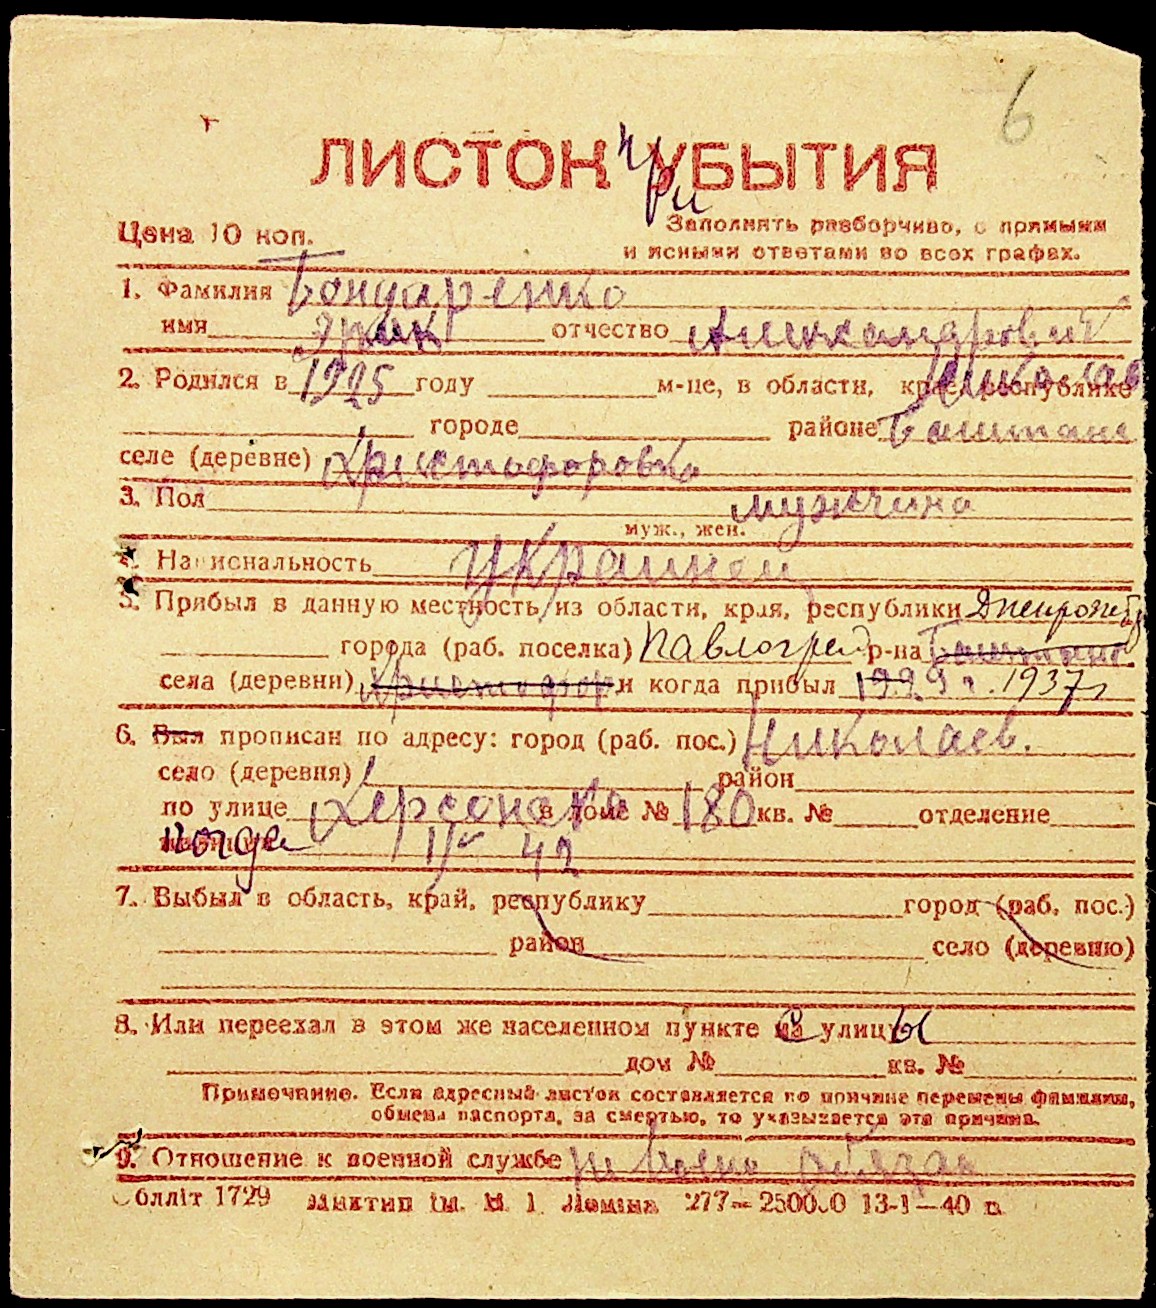 6
ЛИСТОК при УБЫТИЯ
Цена 10 коп.
Заполнять разборчиво, с прямыми
и ясными ответами во всех графах.
1. Фамилия Бондаренко
имя отчество Александрович
2. Родился в 1925 году м-це, в области, крае, республике Николаев
городе районе Баштанс
селе (деревне) Христофоровка
3. Пол мужчина
муж., жен.
4. Национальность украинец
5. Прибыл в данную местность из области, края, республики Днепропетр
города (раб. поселка) Павлоград р-на Баштанс
села (деревни) Христофор и когда прибыл 1937 г
6. Был прописан по адресу: город (раб. пос.) Николаев.
село (деревня) район
по улице Херсонска в доме № 180 кв. № отделение
когда 42
7. Выбыл в область, край, республику город (раб. пос.)
район село (деревню)
8. Или переехал в этом же населенном пункте на с улицы
дом № кв. №
Примечание. Если адресный листок составляется по причине перемены фамилии,
обмена паспорта, за смертью, то указывается эта причина.
9. Отношение к военной службе не военно обязан
Облліт 1729 277—250000 13-I—40 п.